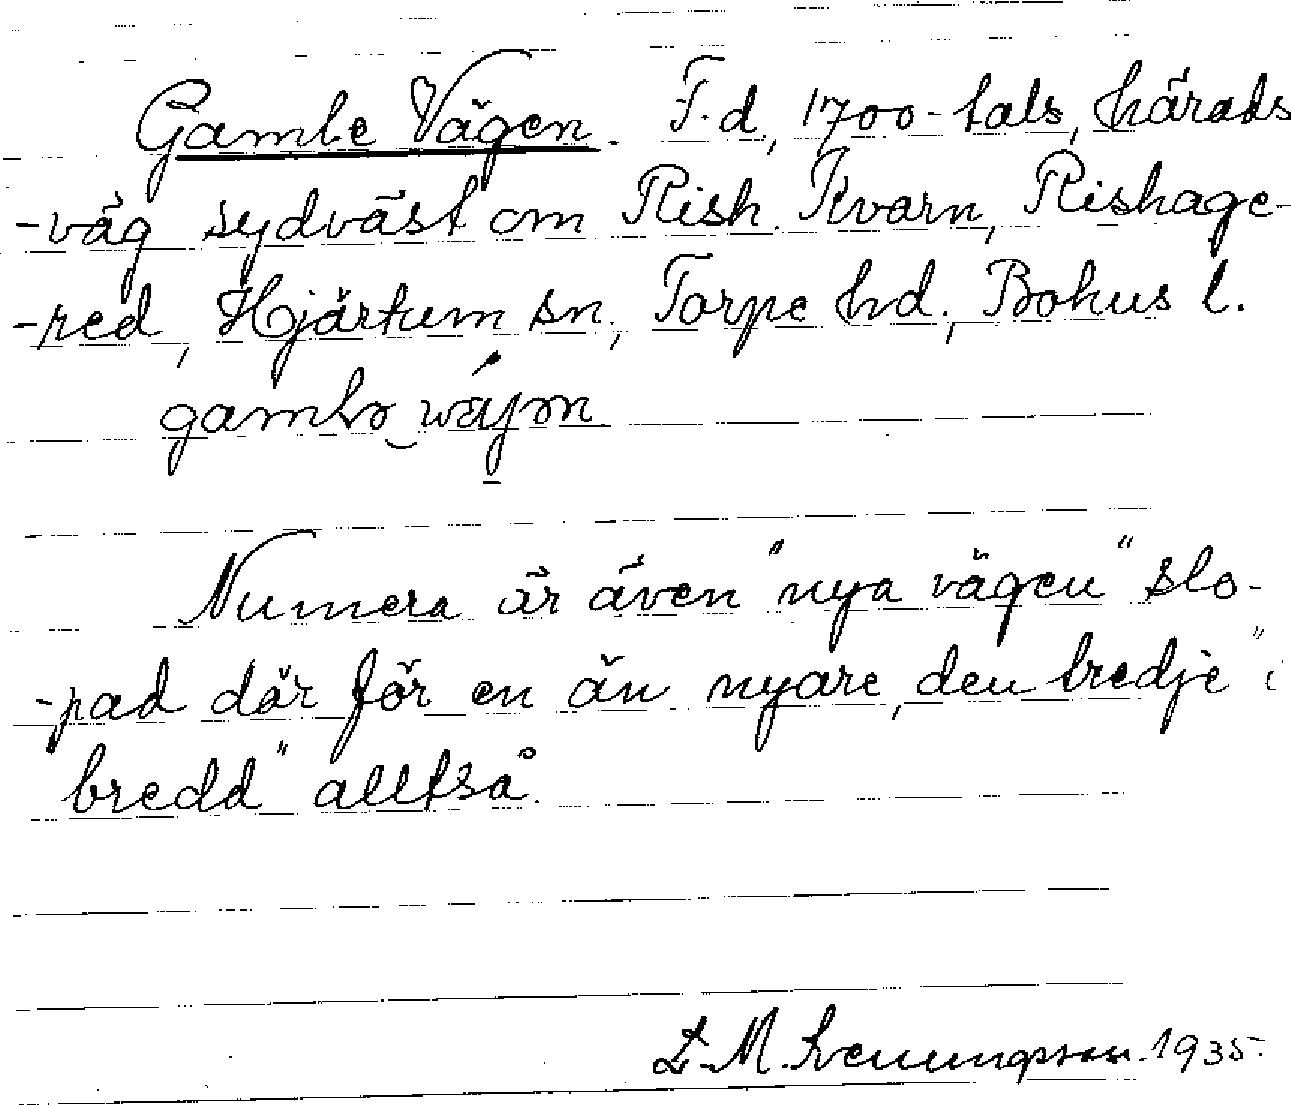 Gamle Vägen. F.d., 1700-tals, härads
-väg sydväst om Rish Kvarn, Rishage-
-red, Hjärtum sn., Torpe hd., Bohus l.
Numera är även "nya vägen" slo-
-pad där för en än nyare, den bredje" i
bredd" alltså.
M. Svenungsson. 1935.